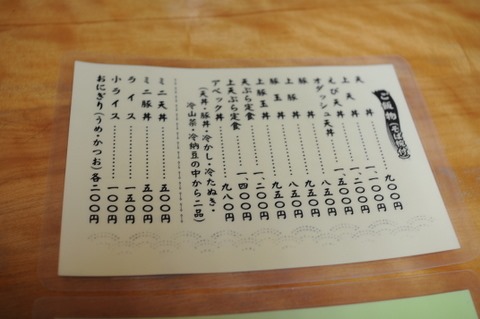 ご飯物
天丼………………九〇〇円
上天丼………………
えび天丼………………一、二〇〇円
オダッシュ天丼………一、五〇〇円
豚丼………………八五〇円
上豚丼………………九五〇円
豚玉丼………………八五〇円
上豚玉丼………………九五〇円
天ぷら定食…………一、二〇〇円
上天ぷら定食…………一、四〇〇円
アベック丼………………九八〇円
(天丼・豚丼・冷かし・冷たぬき・
冷山菜・冷納豆の中から二品)
ミニ天丼………………五〇〇円
ミニ豚丼………………五〇〇円
ライス………………一五〇円
小ライス………………一〇〇円
おにぎり(うめ・かつお)各二〇〇円